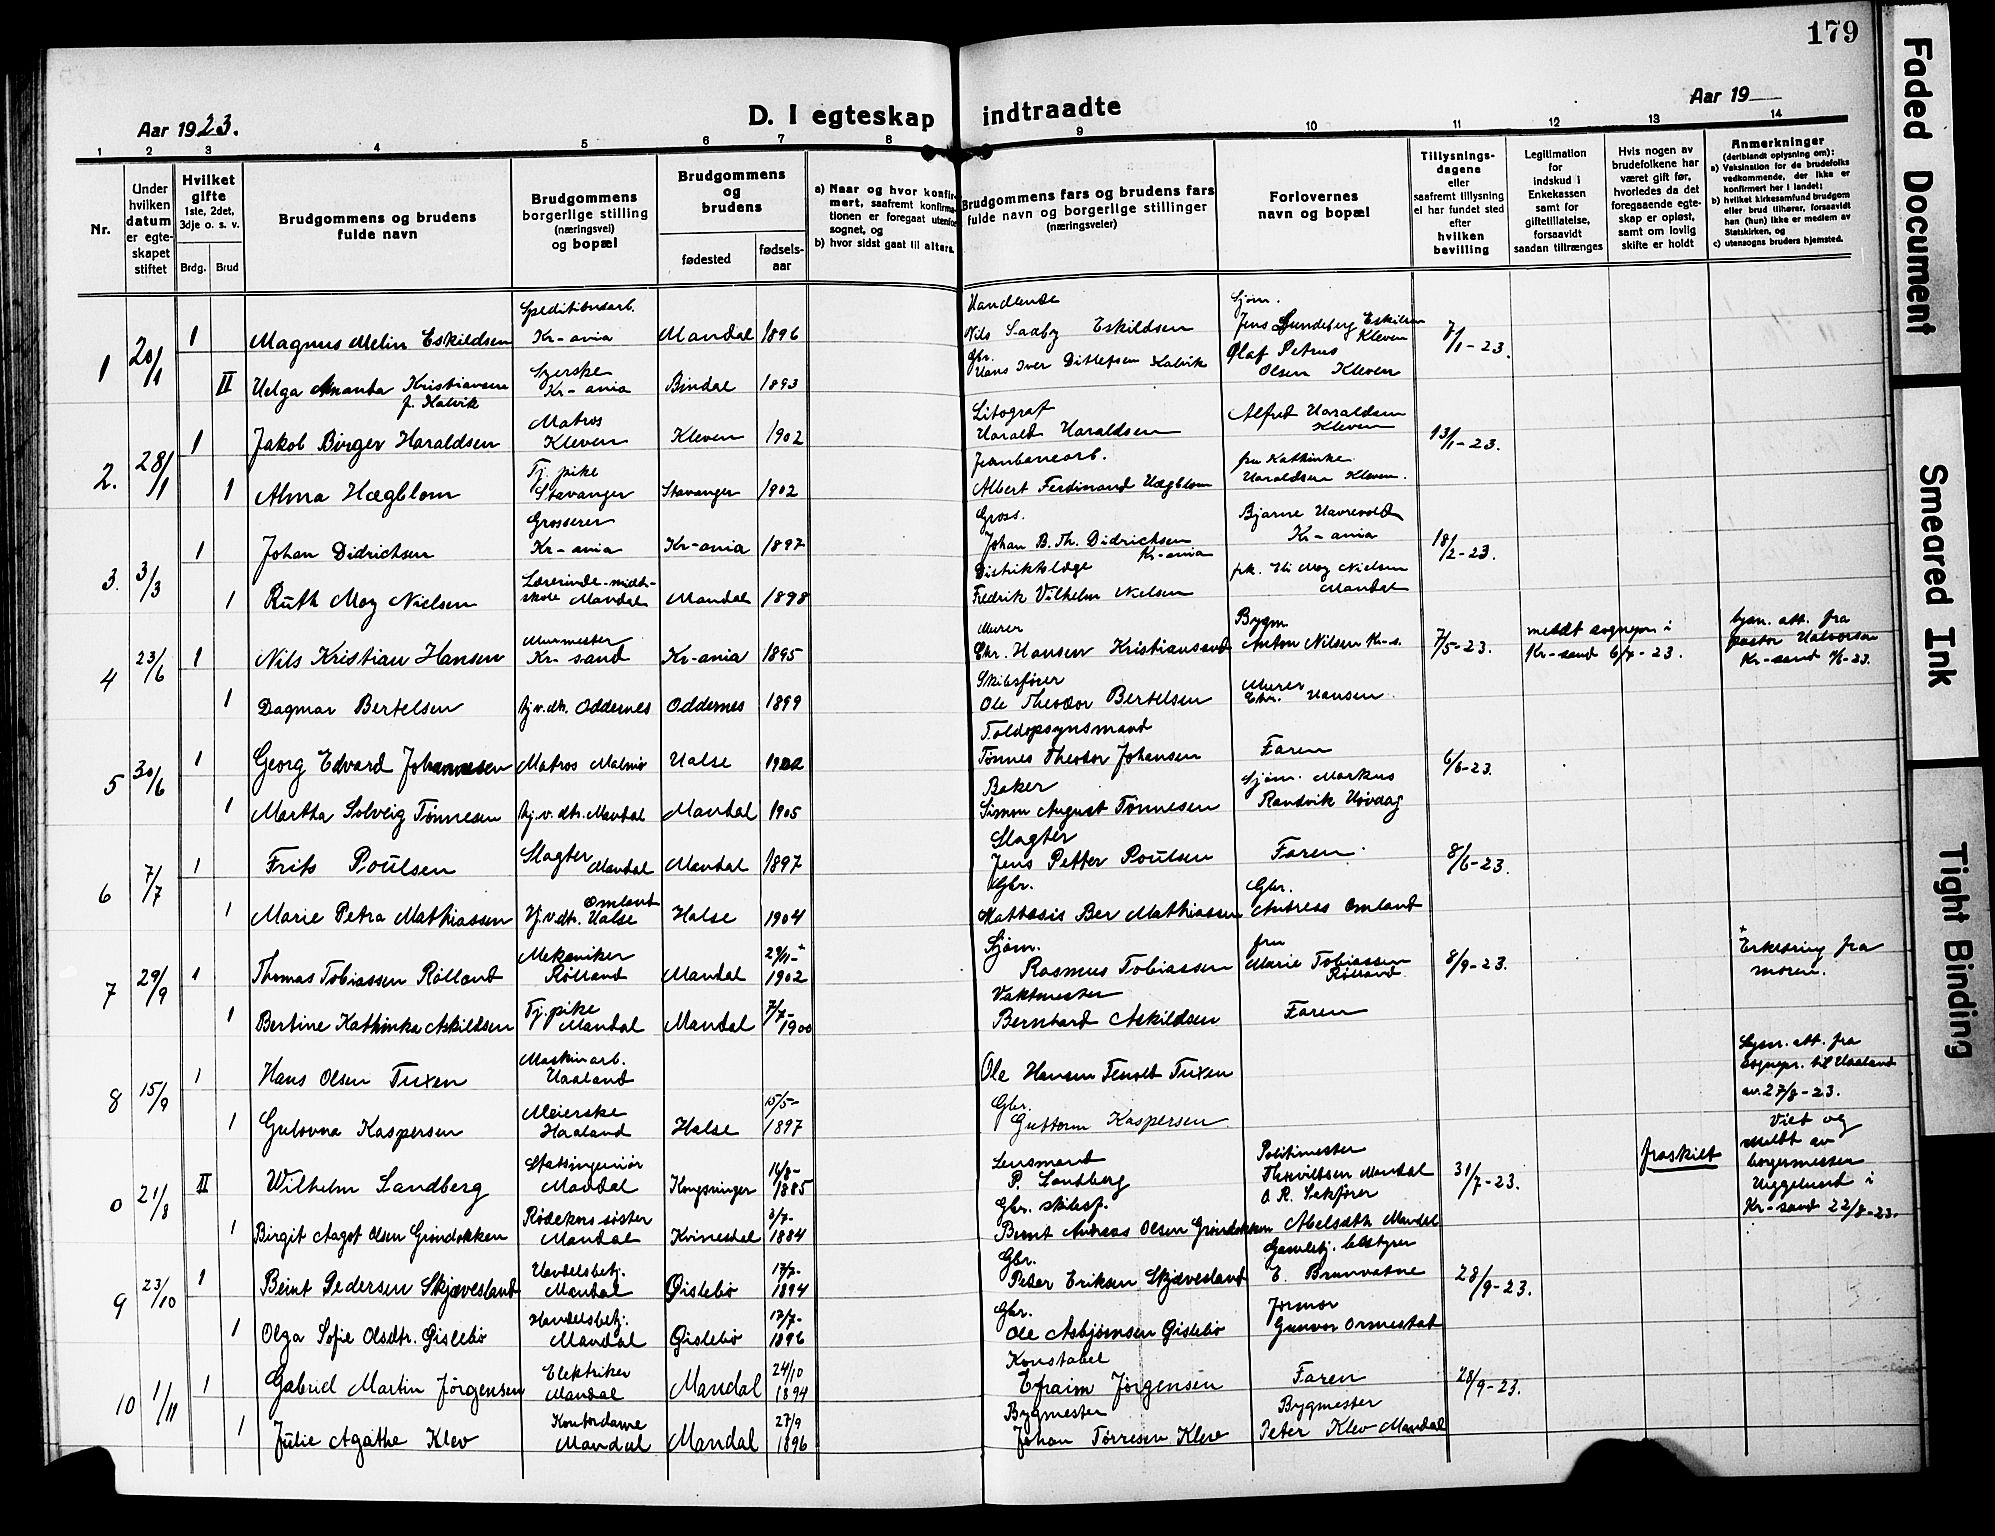 179
Aar 1923.
D. I egteskap indtraadte
Aar 19
1 2 3 4 5 6 7 8 9 10 11 12 13 14
Nr.
Under hvilken datum er egteskapet stiftet
Hvilket gifte 1ste, 2det, 3dje o. s. v.
Brdg. Brud
Brudgommens og brudens fulde navn
Brudgommens borgerlige stilling (næringsvei) og bopæl
Brudgommens og brudens
fødested
fødsels-aar
a) Naar og hvor konfirmert, saafremt konfirmationen er foregaat utenfor sognet, og
b) hvor sidst gaat til alters.
Brudgommens fars og brudens fars fulde navn og borgerlige stillinger (næringsveier)
Forlovernes navn og bopæl
Tillysnings-dagene eller saafremt tillysning ei har fundet sted efter hvilken bevilling
Legitimation for indskud i Enkekassen samt for giftetillatelse, forsaavidt saadan tiltrænges
Hvis nogen av brudefolkene har været gift før, hvorledes da det foregaaende egteskap er opløst, samt om lovlig skifte er holdt
Anmerkninger
(deriblandt oplysning om):
a) Vaksination for de brudefolks vedkommende, der ikke er konfirmert her i landet;
b) hvilket kirkesamfund brudgom eller brud tilhører, forsaavidt han (hun) ikke er medlem av Statskirken, og
c) utensogns bruders hjemsted.
Speditionsarb. Handlende Sjøm.
1 20/1 1 Magnus Melin Eskildsen Kr-ania Mandal 1896 Nils Saaby Eskildsen Jens Lundeberg Eskildsen Kleven 7/1-23.
II Helga Amanda Kristiansen f. Kalvik Syerske Kr-ania Bindal 1893 Gbr. Hans Iver Ditlefsen Kalvik Olaf Petrus Olsen Kleven
2. 28/1 1 Jakob Birger Haraldsen Matros Kleven Kleven 1902 Litograf Harald Haraldsen Alfred Haraldsen Kleven 13/1-23.
1 Alma Hægblom Tj. pike Stavanger Stavanger 1902 Jernbanearb. Albert Ferdinand Hægblom fru Kathinka Haraldsen Kleven.
3. 3/3 1 Johan Didrichsen Grosserer Kr-ania Kr-ania 1897 Gross. Johan B. Th. Didrichsen Kr-ania Bjarne Havrevold Kr-ania 18/2-23.
1 Ruth Moy Nielsen Lærerinde-midt-skole Mandal Mandal 1898 Distriktslæge Fredrik Vilhelm Nielsen frk. Moy Nielsen Mandal
4 23/6 1 Nils Kristian Hansen Murmester Kr-sand Kr-ania 1895 Murer Chr. Hansen Kristiansand Bygm. Anton Nilsen Kr-s. 7/5-23. meldt sognepr. i Kr-sand 6/7-23. lysn. att. fra pastor Halvorsen Kr-sand
1 Dagmar Bertelsen Hj.v.dtr. Oddernes Oddernes 1899 Skibsfører Ole Theodor Bertelsen Murer Chr. Hansen
5 30/6 1 Georg Edvard Johannesen Matros Malmø Halse Toldopsynsmand Tønnes Theodor Johansen Faren 6/6-23.
1 Martha Solveig Tønnesen Hj.v.dtr. Mandal Mandal 1905 Baker Simon August Tønnesen Sjøm. Markus Randvik Hovdag
6 7/7 1 Frits Poülsen Slagter Mandal Mandal 1897 Slagter Jens Petter Poülsen Faren. 8/6-23.
1 Marie Petra Mathiassen Hj.v.dtr. Omland Halse Halse 1904 Gbr. Ber Mathiassen Gbr. Andreas Omland
7 29/9 1 Thomas Tobiassen Rølland Mekaniker Rølland Mandal 29/11- + 1902 Sjøm. Rasmus Tobiassen fru Marie Tobiassen Rølland 8/9-23. + Erklæring fra moren.
1 Bertine Kathinka Askildsen Tj. pike Mandal Mandal 7/7-1900 Vaktmester Bernhard Askildsen Faren
8 15/9 1 Hans Olsen Tuxen Maskinarb. Haaland Ole Hansen Tuxen Lysn. att. fra sognepr. til Haaland av 27/8-23.
1 Gulovna Kaspersen Meierske Haaland Halse 15/5-1897 Gbr. Guttorm Kaspersen
0 21/8 II Wilhelm Sandberg Statsingeniør Mandal Kongsvinger 16/8-1885 Lensmand P. Sandberg Politimester Mandal 31/7-23. fraskilt Viet og meldt av borgermester Uggelund i Kr-sand 22/8-23.
1 Birgit Aagot Olsen Grindokken Rødekors søster Mandal Kvinesdal 3/7-1884 Gbr. skibsf. Bernt Andreas Olsen Grindokken O. R. Sakfører Abelseth Mandal
9 23/10 1 Beint Pedersen Skjævesland Handelsbetj. Mandal Øislebø 17/7-1894 Gbr. Peder Eriksen Skjævesland Gamlehj. bestyrer E. Brunvatne 28/9-23.
1 Olga Sofie Olsdtr. Øislebø Handelsbetj. Mandal Øislebø 13/7-1896 Gbr. Ole Asbjørnsen Øislebø Jormor Gunvor Ormestad
10 1/11 1 Gabriel Martin Jörgensen Elektriker Mandal Mandal 24/10 1894 Konstabel Efraim Jörgensen Faren 28/9-23.
1 Julie Agathe Klev Kontordame Mandal Mandal 27/9 1896 Bygmester Johan Tørresen Klev Bygmester Peter Klev Mandal
Faded Document
Smeared Ink
Tight Binding